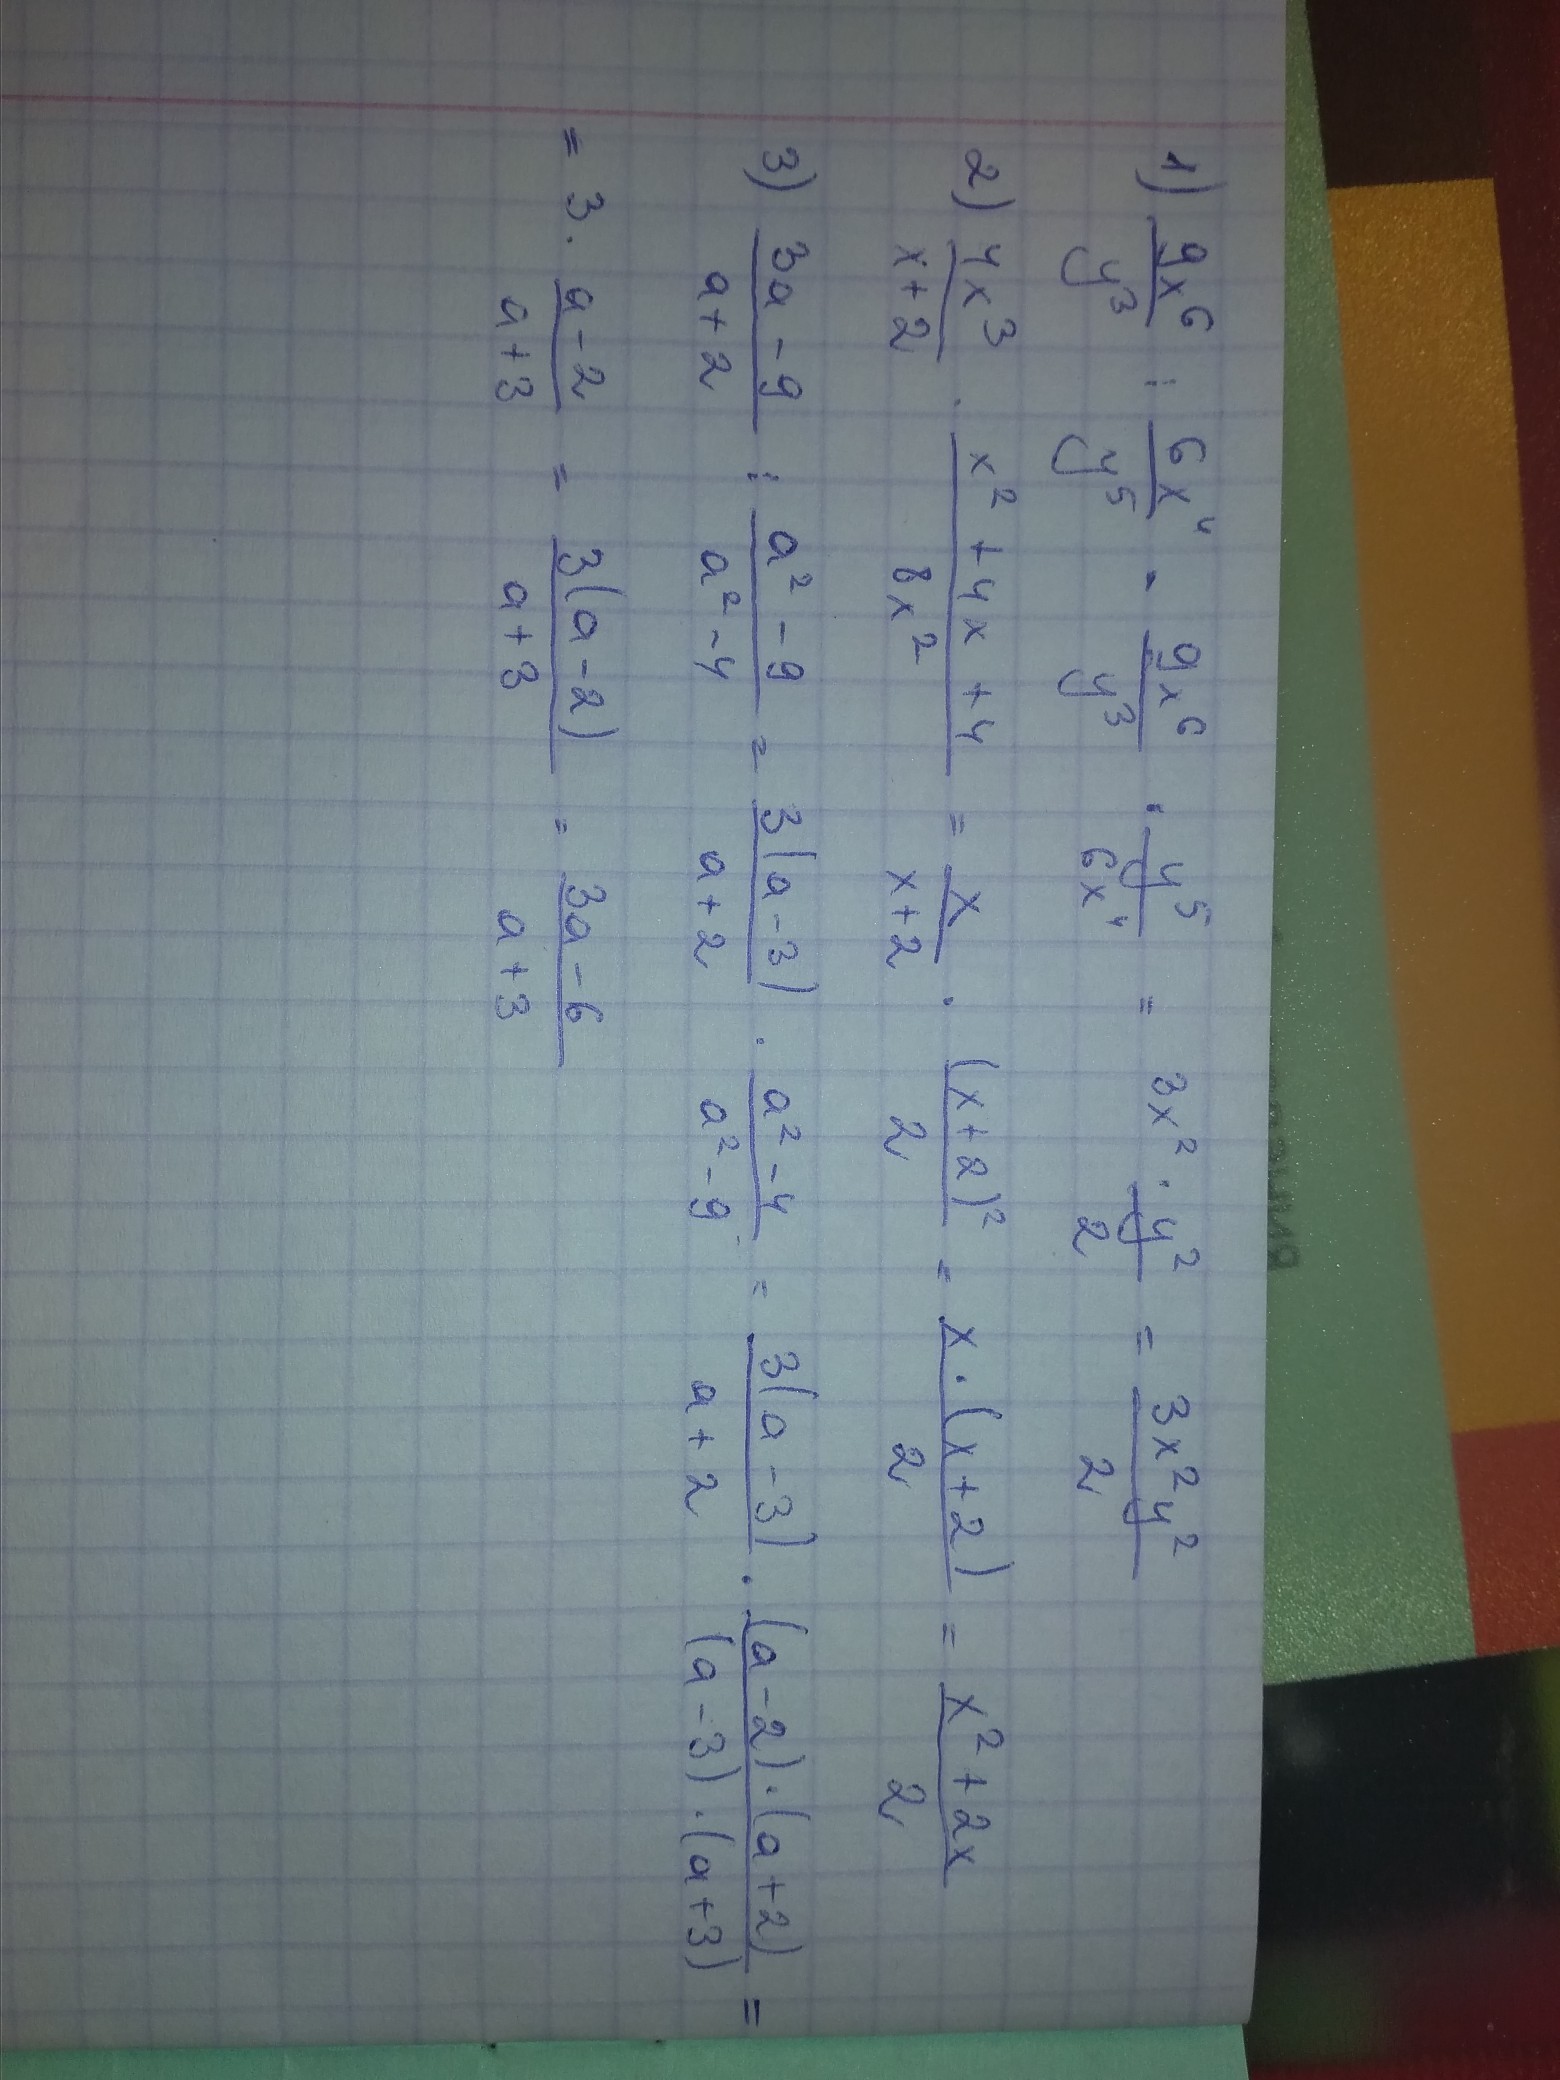 1) 9x⁶/y³ : 6x⁴/y⁵ = 9x⁶/y³ · y⁵/6x⁴ = 3x² · y²/2 = 3x²y²/2
2) 4x³/x+2 · x²+4x+4/8x² = x/x+2 · (x+2)²/2 = x·(x+2)/2 = x²+2x/2
3) 3a-9/a+2 : a²-9/a²-4 = 3(a-3)/a+2 · a²-4/a²-9 = 3(a-3)/a+2 · (a-2)·(a+2)/(a-3)·(a+3) =
= 3 · a-2/a+3 = 3(a-2)/a+3 = 3a-6/a+3